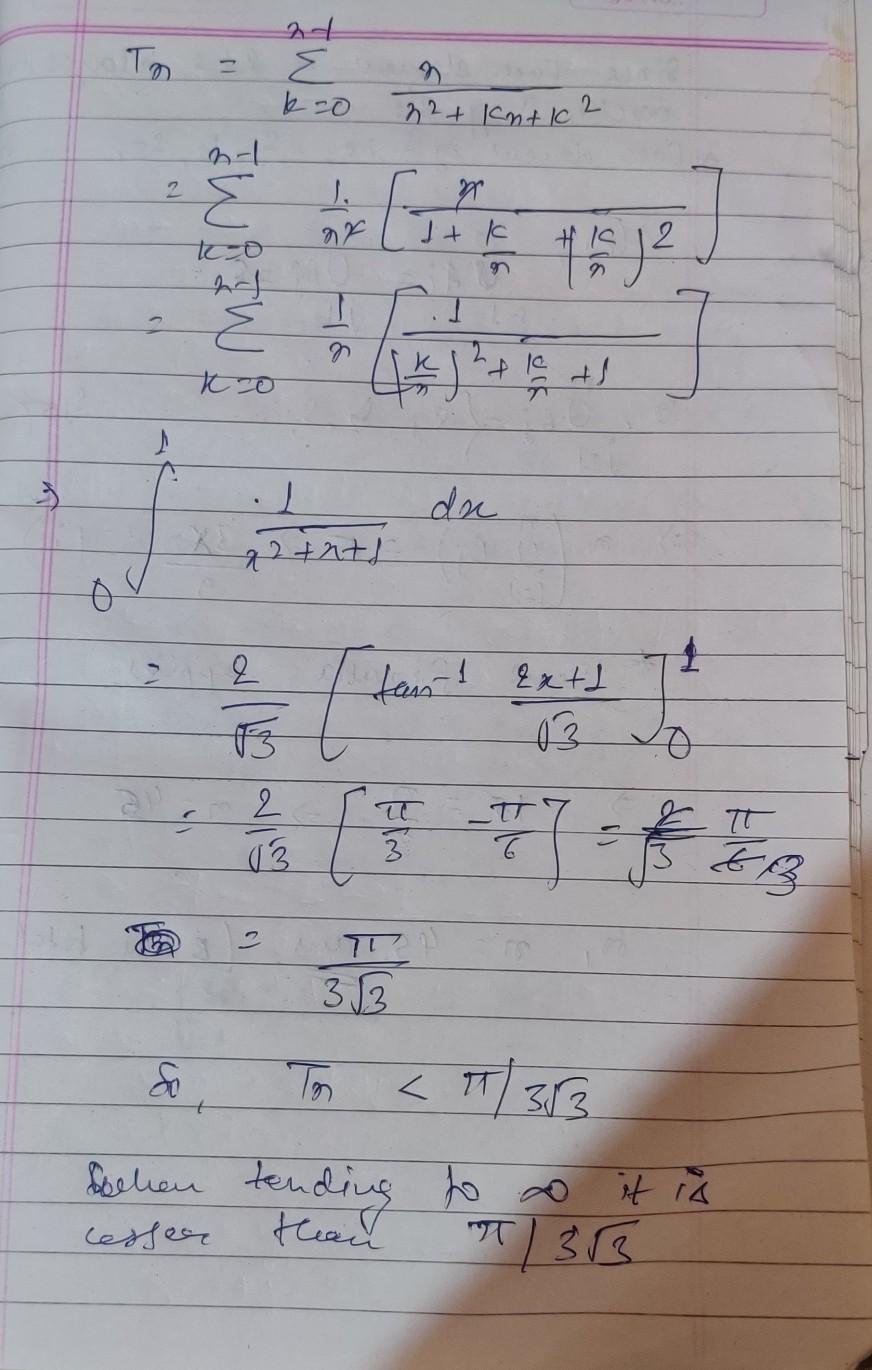 n-1
Tn = Σ n / n² + kn + k²
k=0
n-1
= Σ 1/n² [ n / 1 + k/n + (k/n)² ]
k=0
n-1
= Σ 1/n [ 1 / (k/n)² + k/n + 1 ]
k=0
⇒ ∫₀¹ 1 / x² + x + 1 dx
= 2/√3 [ tan⁻¹ 2x+1 / √3 ]₀¹
= 2/√3 [ π/3 - π/6 ] = 2/√3 π/6 3
= π / 3√3
So, Tn < π/3√3
when tending to ∞ it is
lesser than π/3√3